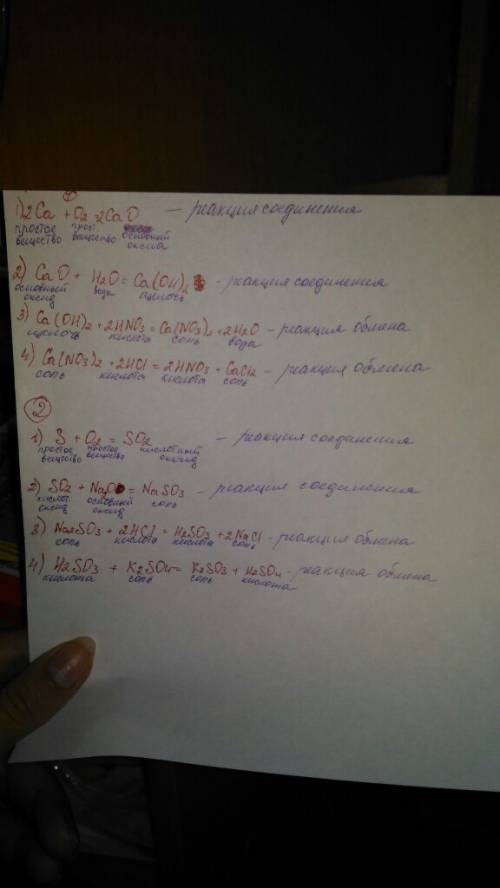 ①
1) 2Ca + O2 2CaO — реакция соединения
простое прост основный
вещество вещество оксид
2) CaO + H2O = Ca(OH)2 - реакция соединения
основный вода щелочь
оксид
3) Ca(OH)2 + 2HNO3 = Ca(NO3)2 + 2H2O - реакция обмена
щелочь кислота соль вода
4) Ca(NO3)2 + 2HCl = 2HNO3 + CaCl2 - реакция обмена
соль кислота кислота соль
②
1) S + O2 = SO2 - реакция соединения
простое простое кислотный
вещество вещество оксид
2) SO2 + Na2O = NaSO3 - реакция соединения
кислот. основный соль
оксид оксид
3) Na2SO3 + 2HCl = H2SO3 + 2NaCl - реакция обмена
соль кислота кислота соль
4) H2SO3 + K2SO4 = K2SO3 + H2SO4 - реакция обмена
кислота соль соль кислота